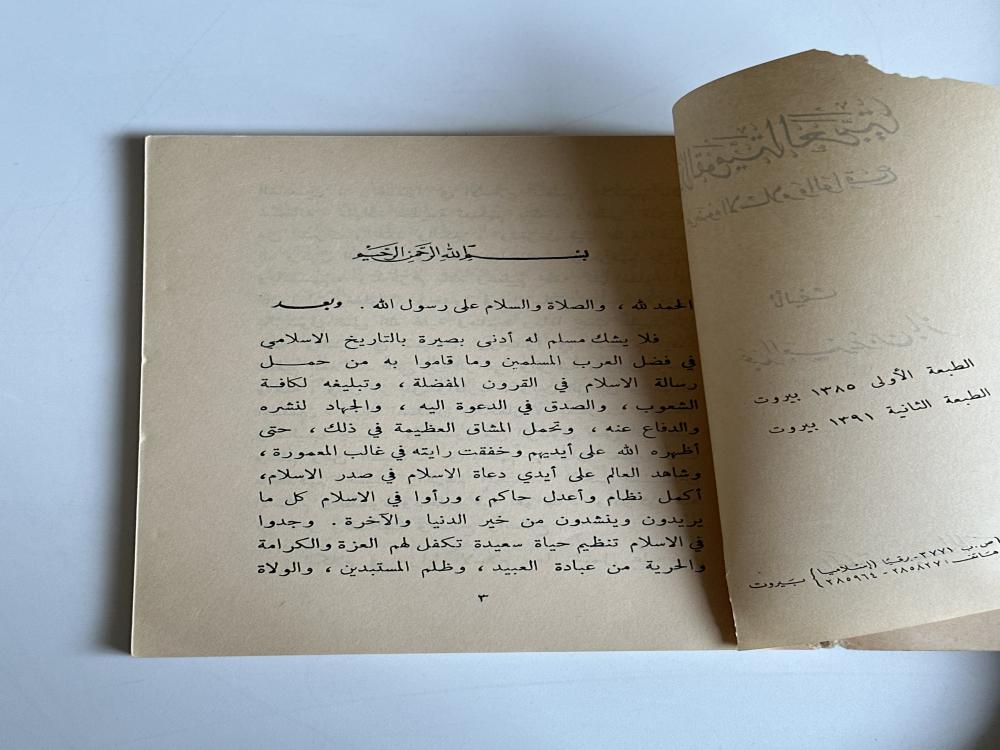 بسم الله الرحمن الرحيم
الحمد لله ، والصلاة والسلام على رسول الله . وبعد
فلا يشك مسلم له أدنى بصيرة بالتاريخ الاسلامي
في فضل العرب المسلمين وما قاموا به من حمل
رسالة الاسلام في القرون المفضلة ، وتبليغه لكافة
الشعوب ، والصدق في الدعوة اليه ، والجهاد لنشره
والدفاع عنه ، وتحمل المشاق العظيمة في ذلك ، حتى
أظهره الله على أيديهم وخفقت رايته في غالب المعمورة ،
وشاهد العالم على أيدي دعاة الاسلام في صدر الاسلام،
أكمل نظام وأعدل حاكم ، ورأوا في الاسلام كل ما
يريدون وينشدون من خير الدنيا والآخرة . وجدوا
في الاسلام تنظيم حياة سعيدة تكفل لهم العزة والكرامة
والحرية من عبادة العبيد ، وظلم المستبدين ، والولاة
٣
الطبعة الأولى ١٣٨٥ بيروت
الطبعة الثانية ١٣٩١ بيروت
ص.ب ٣٧٧١ - برقيًا (إسلاميا)
هاتف: ٢٨٥٨٢٧ - ٢٨٥٩٦٤ } بيروت